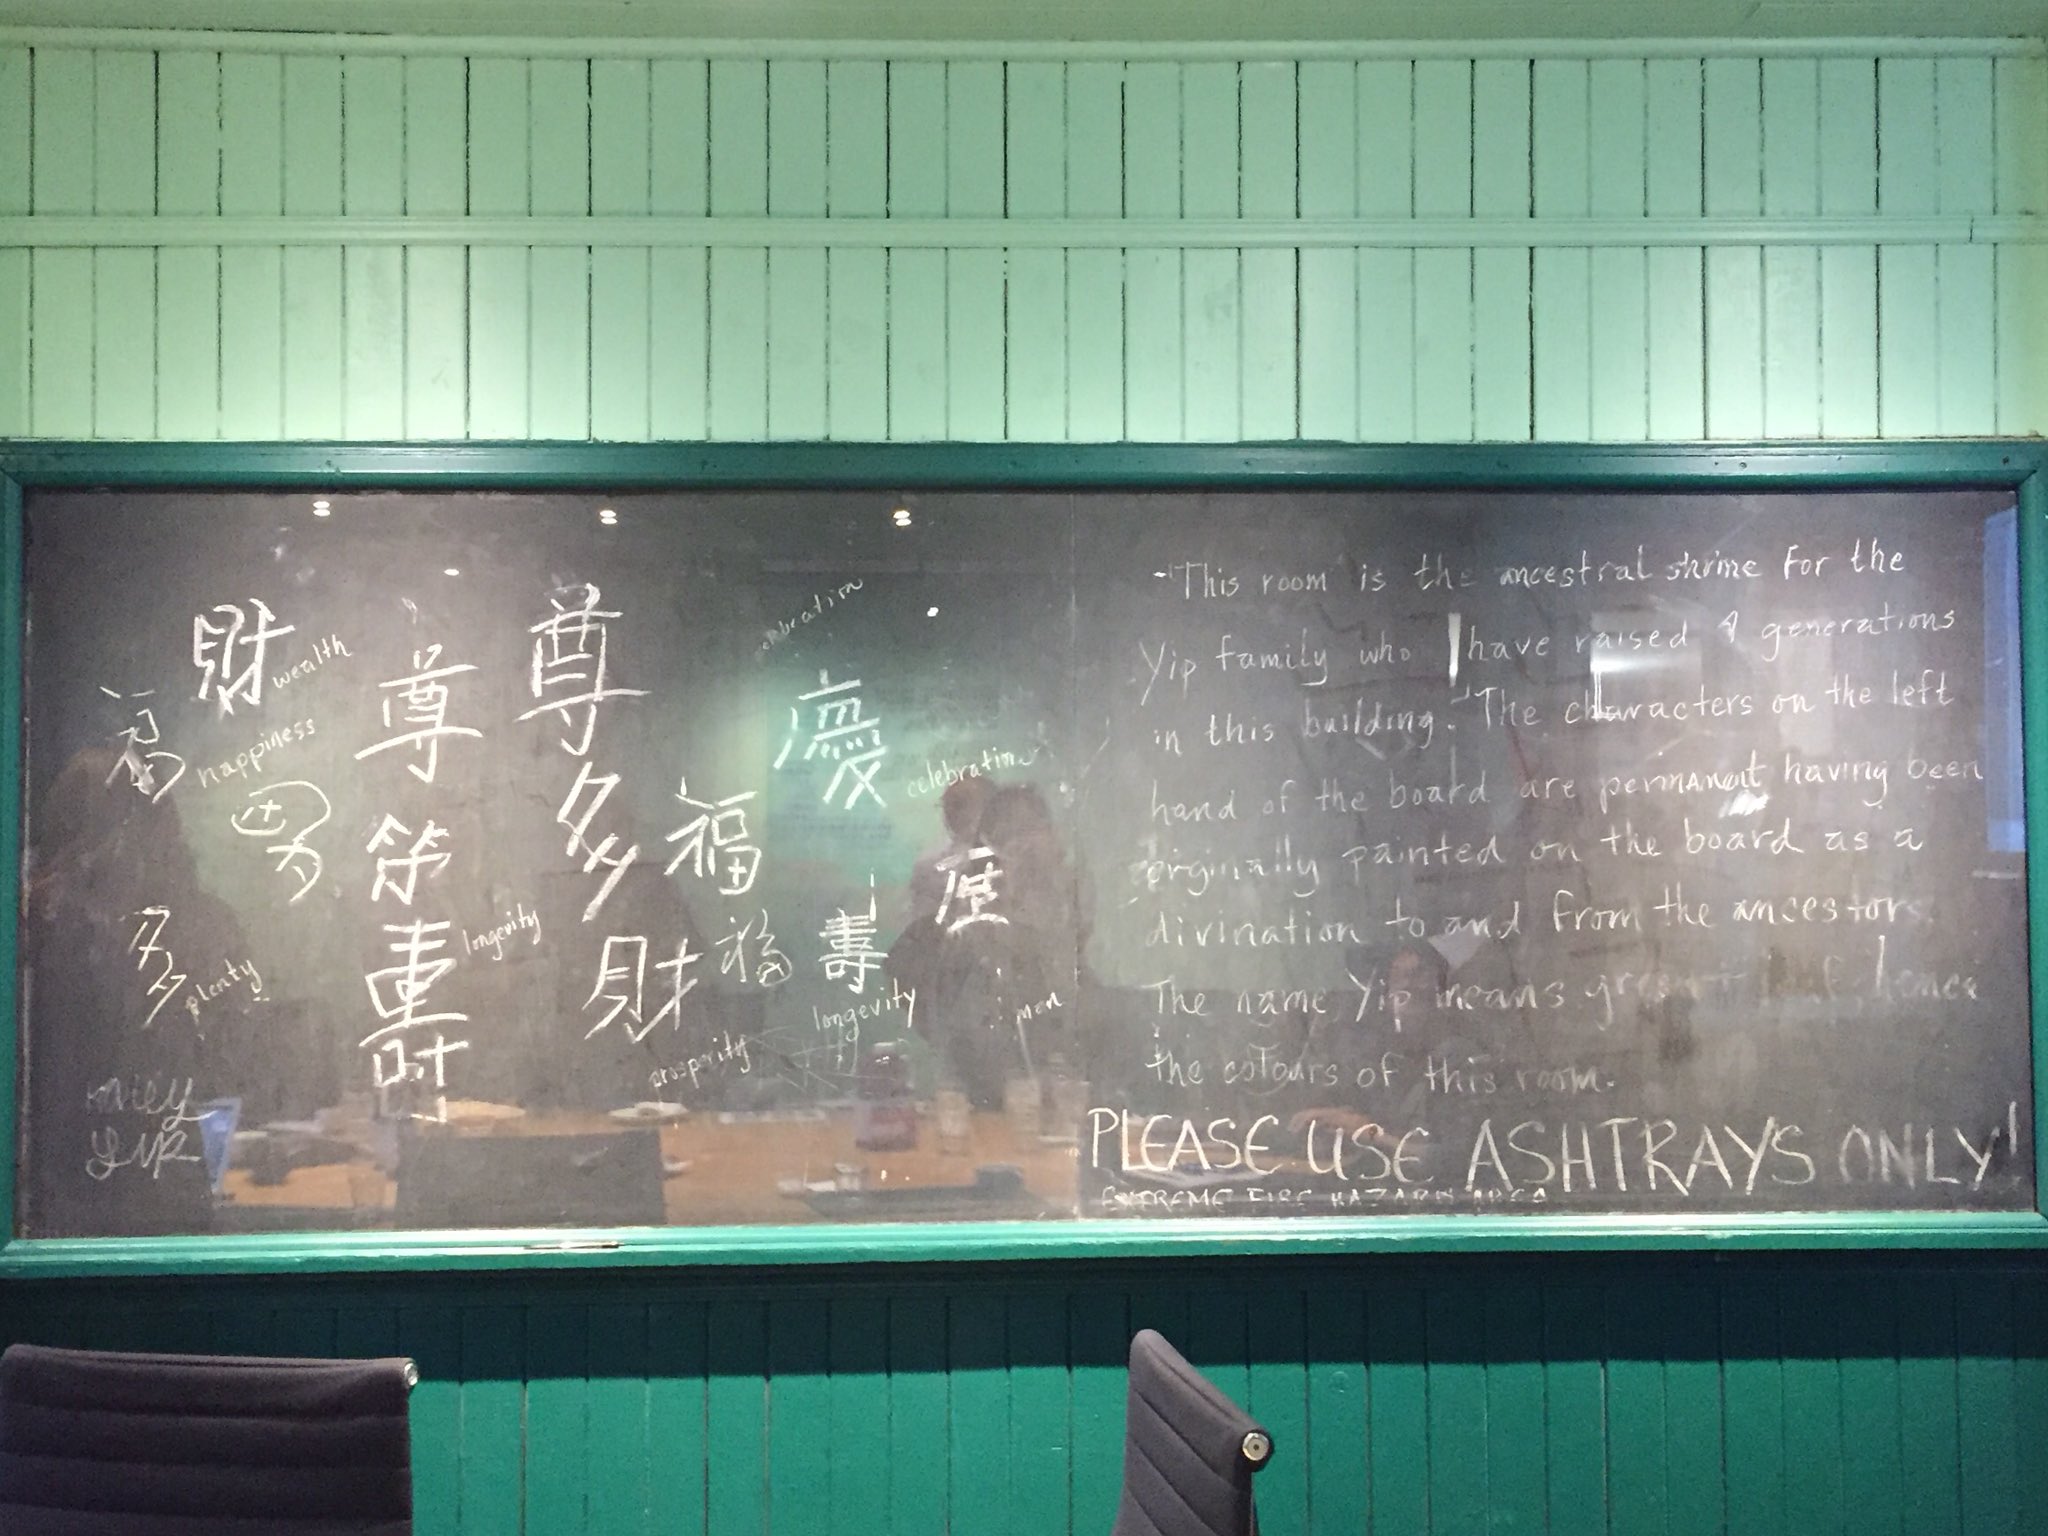 財
wealth
福
happiness
男
多
plenty
尊
longevity
尊
多
財
prosperity
福
福
慶
celebration
壽
longevity
man
"This room is the ancestral shrine for the
Yip family who have raised 4 generations
in this building." The characters on the left
hand of the board are permanant having been
orginally painted on the board as a
divination to and from the ancestors.
The name Yip means green leaf, hence
the colours of this room.
PLEASE USE ASHTRAYS ONLY!
EXTREME FIRE HAZARD AREA